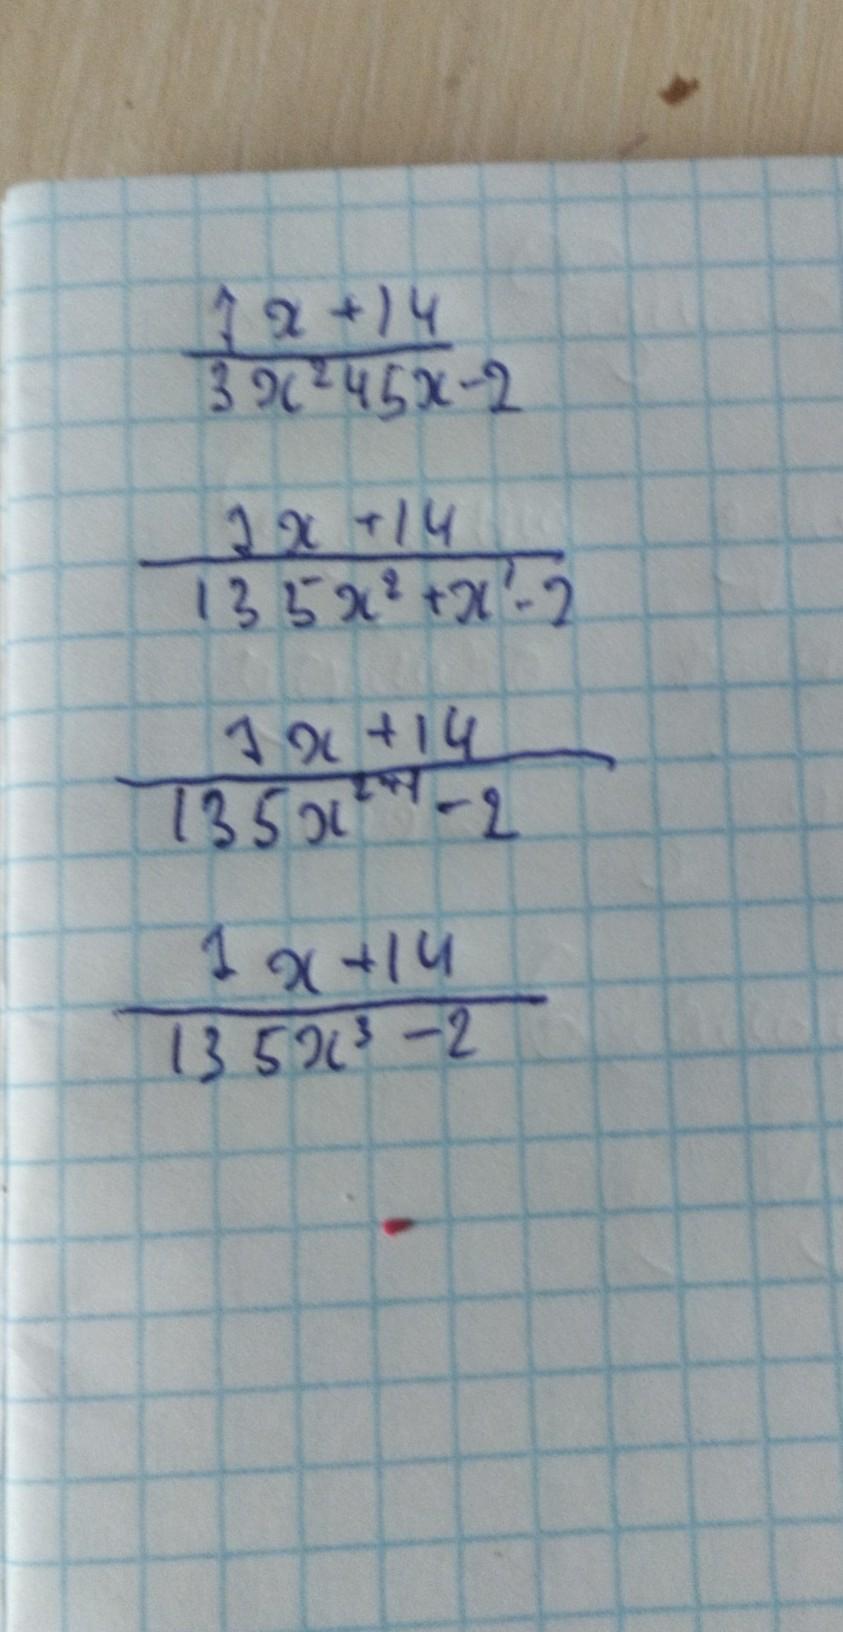 7x+14
3x²45x-2
7x+14
135x²+x¹-2
7x+14
135x²⁺¹-2
7x+14
135x³-2